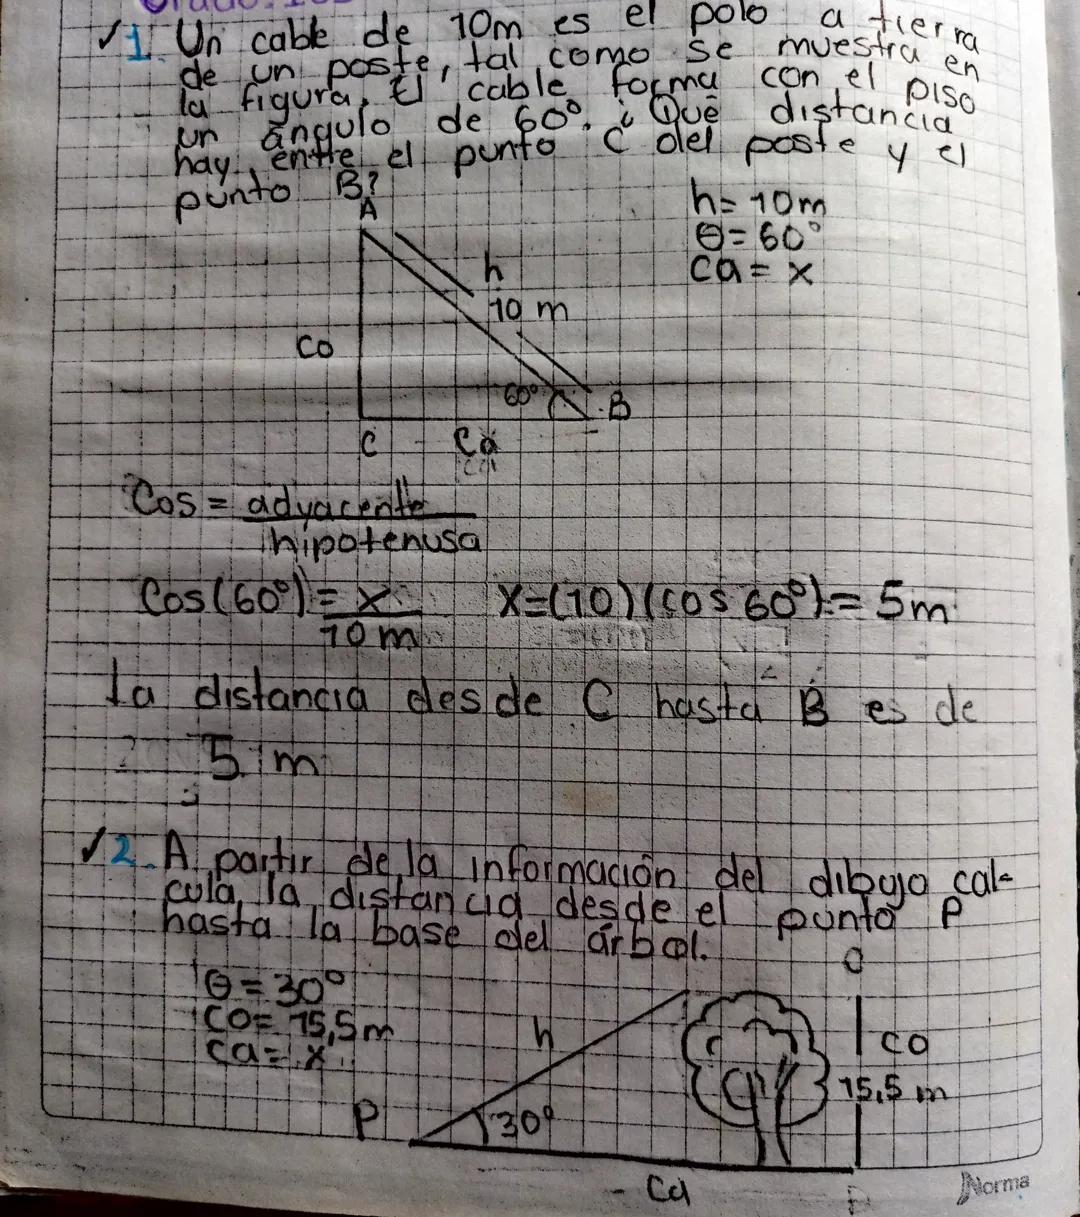 1. Un cable de 10m es el polo a tierra
de un poste, tal como se muestra en
la figura. El cable forma con el piso
un ángulo de 60°. ¿Qué distancia
hay entre el punto C del poste y el
punto B?
A
h= 10m
θ=60°
ca= x
h
10 m
co
60°
B
C
Ca
Cos = adyacente
hipotenusa
Cos(60°)= x
10 m
x=(10)(cos 60°)= 5m
La distancia desde C hasta B es de
5 m
2. A partir de la información del dibujo cal-
cula la distancia desde el punto P
hasta la base del árbol.
θ=30°
CO= 15,5m
ca= x
h
co
15,5 m
P
30°
Ca
Norma